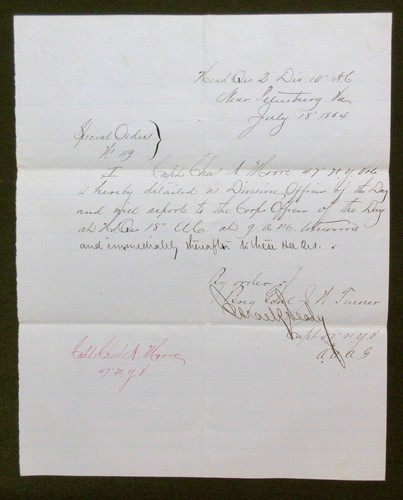 Head Qrs 2d Div. 10th A.C.
Near Petersburg Va
July 18th 1864
Special Orders
No 119
I Capt. Chas A. Moore 47th N.Y. Vols
is hereby detailed as Division Officer of the Day
and will report to the Corps Officer of the Day
at Hd Qrs 18th A.C. at 9 A.M. tomorrow
and immediately thereafter to these Hd Qrs.
By order of
J. W. Turner
Capt 47th N.Y.V
A.A.A.G
Capt Chas A. Moore
47 N.Y.V